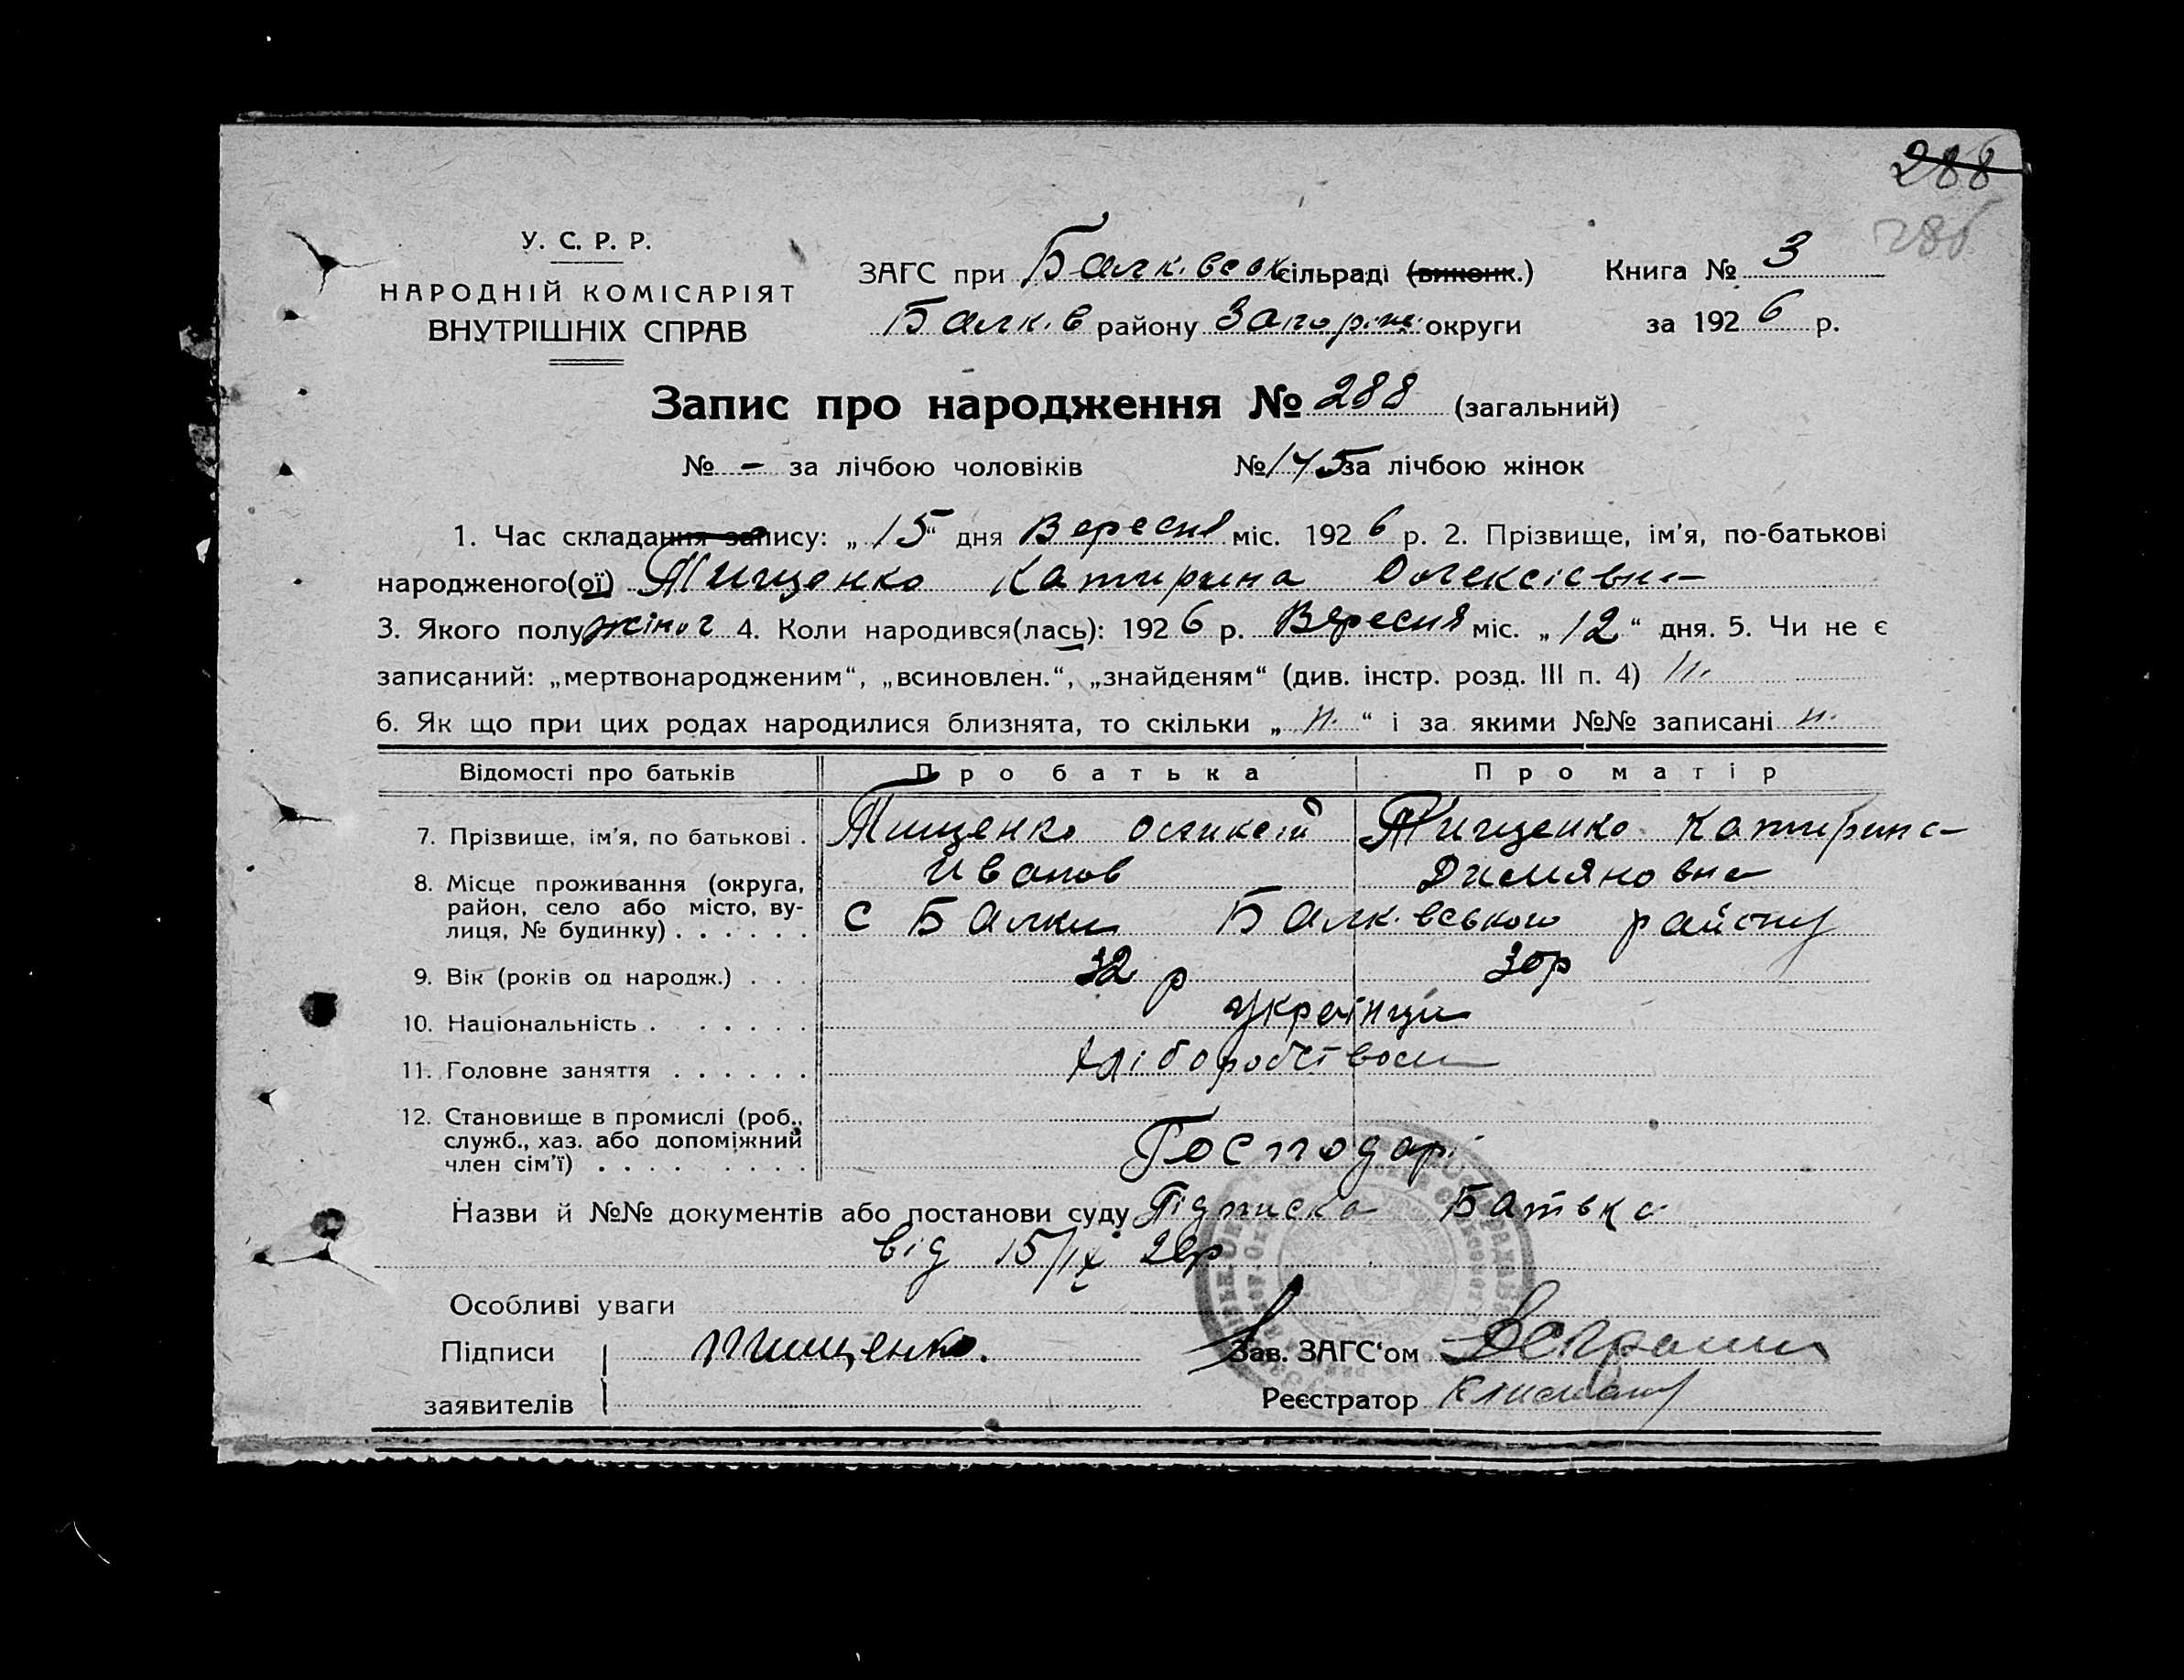 288
286
У. С. Р. Р.
НАРОДНІЙ КОМІСАРІЯТ
ВНУТРІШНІХ СПРАВ
ЗАГС при Балк. вськ сільраді (виконк.)
Балк. в району Запоріж. округи
Книга № 3
за 1926 р.
Запис про народження № 288 (загальний)
№ - за лічбою чоловіків № 145 за лічбою жінок
1. Час складання запису: „15“ дня Вересня міс. 1926 р. 2. Прізвище, ім'я, по-батькові
народженого(ої) Тищенко Катирина Олексієвна
3. Якого полу жіноч 4. Коли народився(лась): 1926 р. Вересня міс. „12“ дня. 5. Чи не є
записаний: „мертвонародженим“, „всиновлен.“, „знайденям“ (див. інстр. розд. III п. 4) н.
6. Як що при цих родах народилися близнята, то скільки „н.“ і за якими №№ записані н.
Відомості про батьків Про батька Про матір
7. Прізвище, ім'я, по батькові . Тищенко Тищенко Катирина
Иванов Димяновна
8. Місце проживання (округа,
район, село або місто, ву-
лиця, № будинку) . . . . . . с Балки Балк. вського району
9. Вік (років од народж.) . . . 32 р 30р
10. Національність . . . . . . українци
11. Головне заняття . . . . . . хліборобством
12. Становище в промислі (роб.,
служб., хаз. або допоміжний
член сім'ї) . . . . . . . . Господарі
Назви й №№ документів або постанови суду Підписка Батька
від 15/IX 26р
Особливі уваги
Підписи Тищенко. Зав. ЗАГС'ом
заявителів Реєстратор